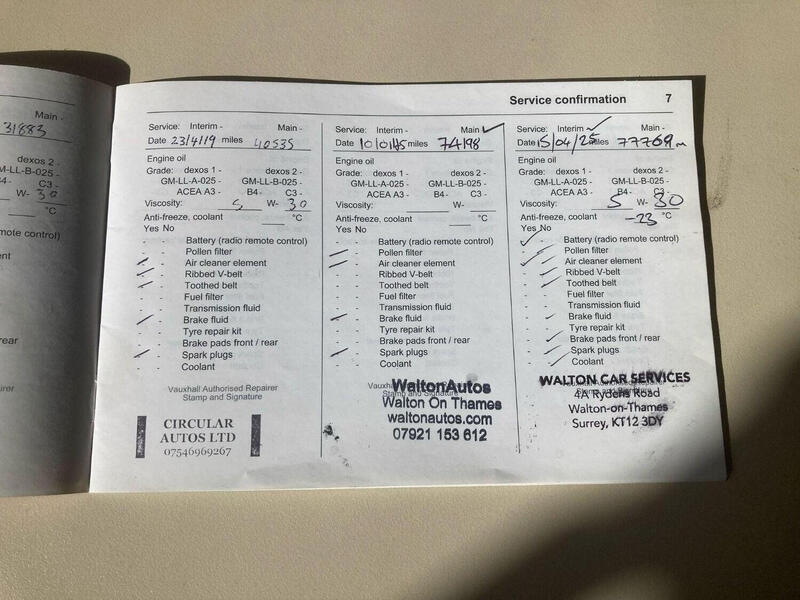 31883
dexos 2 -
GM-LL-B-025 -
B4- C3 -
W- 30
°C
mote control)
ent
rear
Service confirmation 7
Service: Interim - Main -
Date 23/4/19 miles 40535
Engine oil
Grade: dexos 1 - dexos 2 -
GM-LL-A-025 - GM-LL-B-025 -
ACEA A3 - B4- C3 -
Viscosity: 5 W- 30
Anti-freeze, coolant °C
Yes No
- - Battery (radio remote control)
- - Pollen filter
- - Air cleaner element
- - Ribbed V-belt
- - Toothed belt
- - Fuel filter
- - Transmission fluid
- - Brake fluid
- - Tyre repair kit
- - Brake pads front / rear
- - Spark plugs
- - Coolant
Vauxhall Authorised Repairer
Stamp and Signature
CIRCULAR
AUTOS LTD
07546969267
Service: Interim - Main - ✓
Date miles 74198
Engine oil
Grade: dexos 1 - dexos 2 -
GM-LL-A-025 - GM-LL-B-025 -
ACEA A3 - B4- C3 -
Viscosity: W-
Anti-freeze, coolant °C
Yes No
- - Battery (radio remote control)
- - Pollen filter
- - Air cleaner element
- - Ribbed V-belt
- - Toothed belt
- - Fuel filter
- - Transmission fluid
- - Brake fluid
- - Tyre repair kit
- - Brake pads front / rear
- - Spark plugs
- - Coolant
Stamp and Signature
WaltonAutos
Walton On Thames
waltonautos.com
07921 153 612
Service: Interim - ✓ Main -
Date 15/04/25 miles 77769 m
Engine oil
Grade: dexos 1 - dexos 2 -
GM-LL-A-025 - GM-LL-B-025 -
ACEA A3 - B4- C3 -
Viscosity: 5 W- 30
Anti-freeze, coolant -23 °C
Yes No
- - Battery (radio remote control)
- - Pollen filter
- - Air cleaner element
- - Ribbed V-belt
- - Toothed belt
- - Fuel filter
- - Transmission fluid
- - Brake fluid
- - Tyre repair kit
- - Brake pads front / rear
- - Spark plugs
- - Coolant
WALTON CAR SERVICES
4A Rydens Road
Walton-on-Thames
Surrey, KT12 3DY